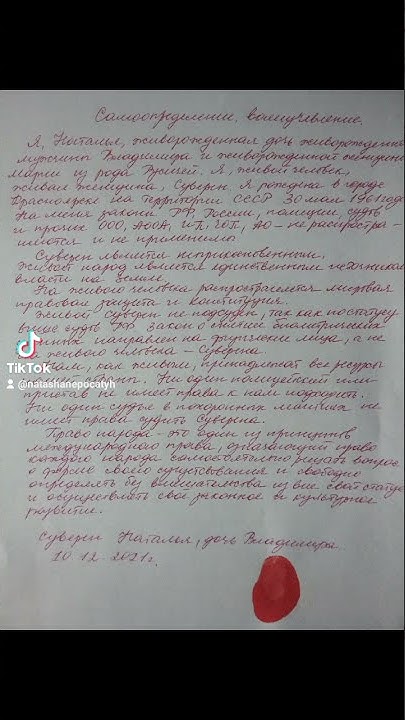 Самоопределение, волеизъявление.
Я, Наталья, живорождённая дочь живорождённого
мужчины Владимира и живорождённой женщины
Марии из рода Я, живой человек,
живая женщина, Суверен. Я рождена в городе
Красноярске на территории СССР 30 мая 1961 года.
На меня законы РФ, России, полиции, суды
и прочих ООО, АООА, ИП, ЧОП, АО - не распростра-
няются и не применимы.
Суверен является неприкосновенным.
Живой народ является единственным источником
власти на Земле.
На живого человека распространяется мировая
правовая защита и конституция.
Живой суверен не подсуден, так как по статусу
выше судов РФ. Закон о снятии биометрических
данных направлен на физические лица, а не
живого человека - Суверена.
Нам, как живым, принадлежат все ресурсы
Ни один полицейский или
пристав не имеет права к нам подходить.
Ни один судья в похоронных мантиях не
имеет права судить Суверена.
Право народа - это один из принципов
международного права, означающий право
каждого народа самостоятельно решать вопрос
о форме своего существования и свободно
определять без вмешательства из вне свой статус
и осуществлять свое законное и культурное
развитие.
Суверен Наталья, дочь Владимира
10.12.2021г.
TikTok
@natashanepocatyh